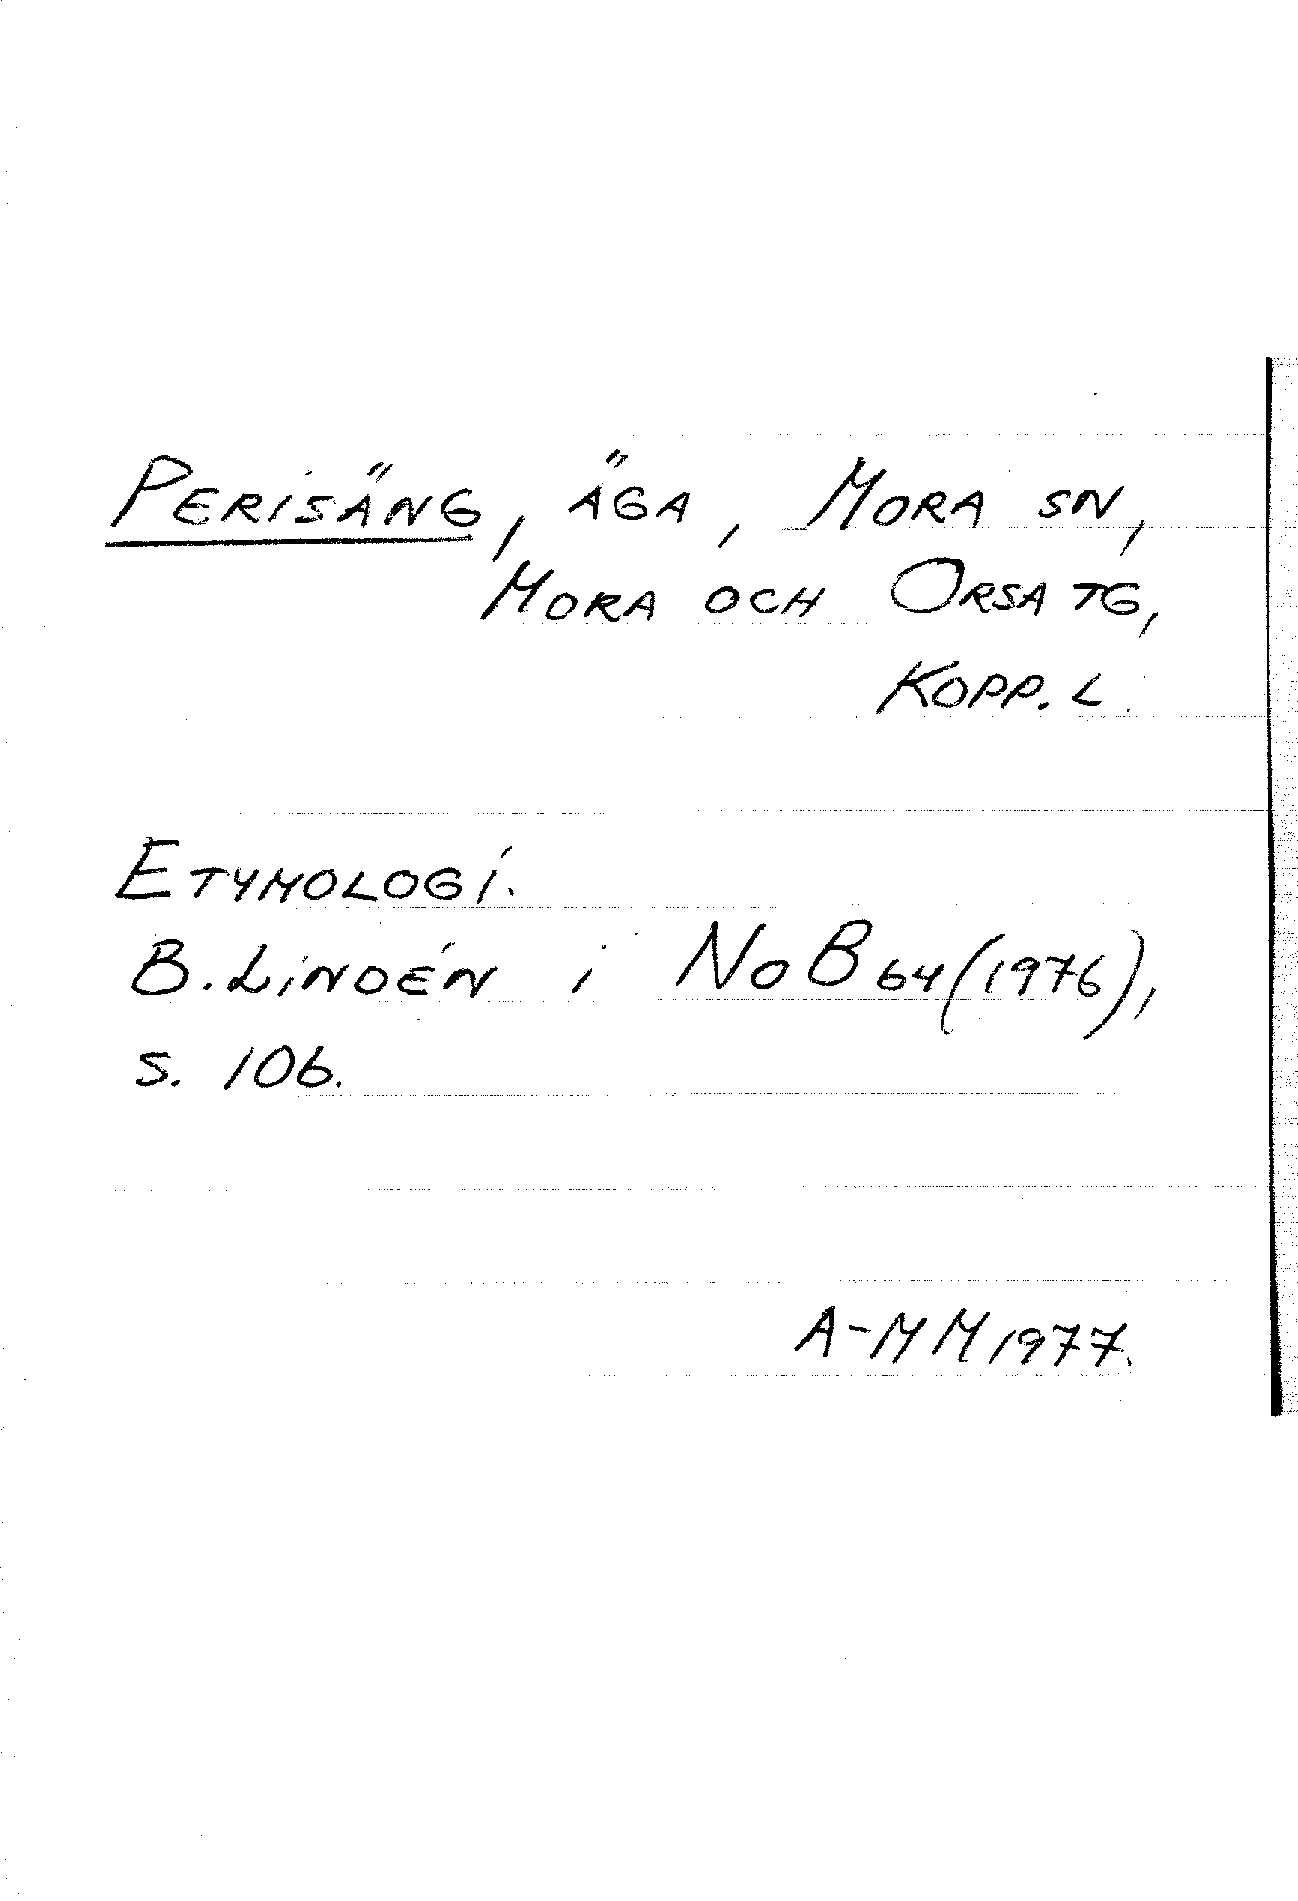 PERISÄNG, ÄGA, MORA SN,
MORA OCH ORSA TG,
KOPP. L.
ETYMOLOGI.
B. LINDÉN i NoB 64 (1976),
S. 106.
A-MM 1977.